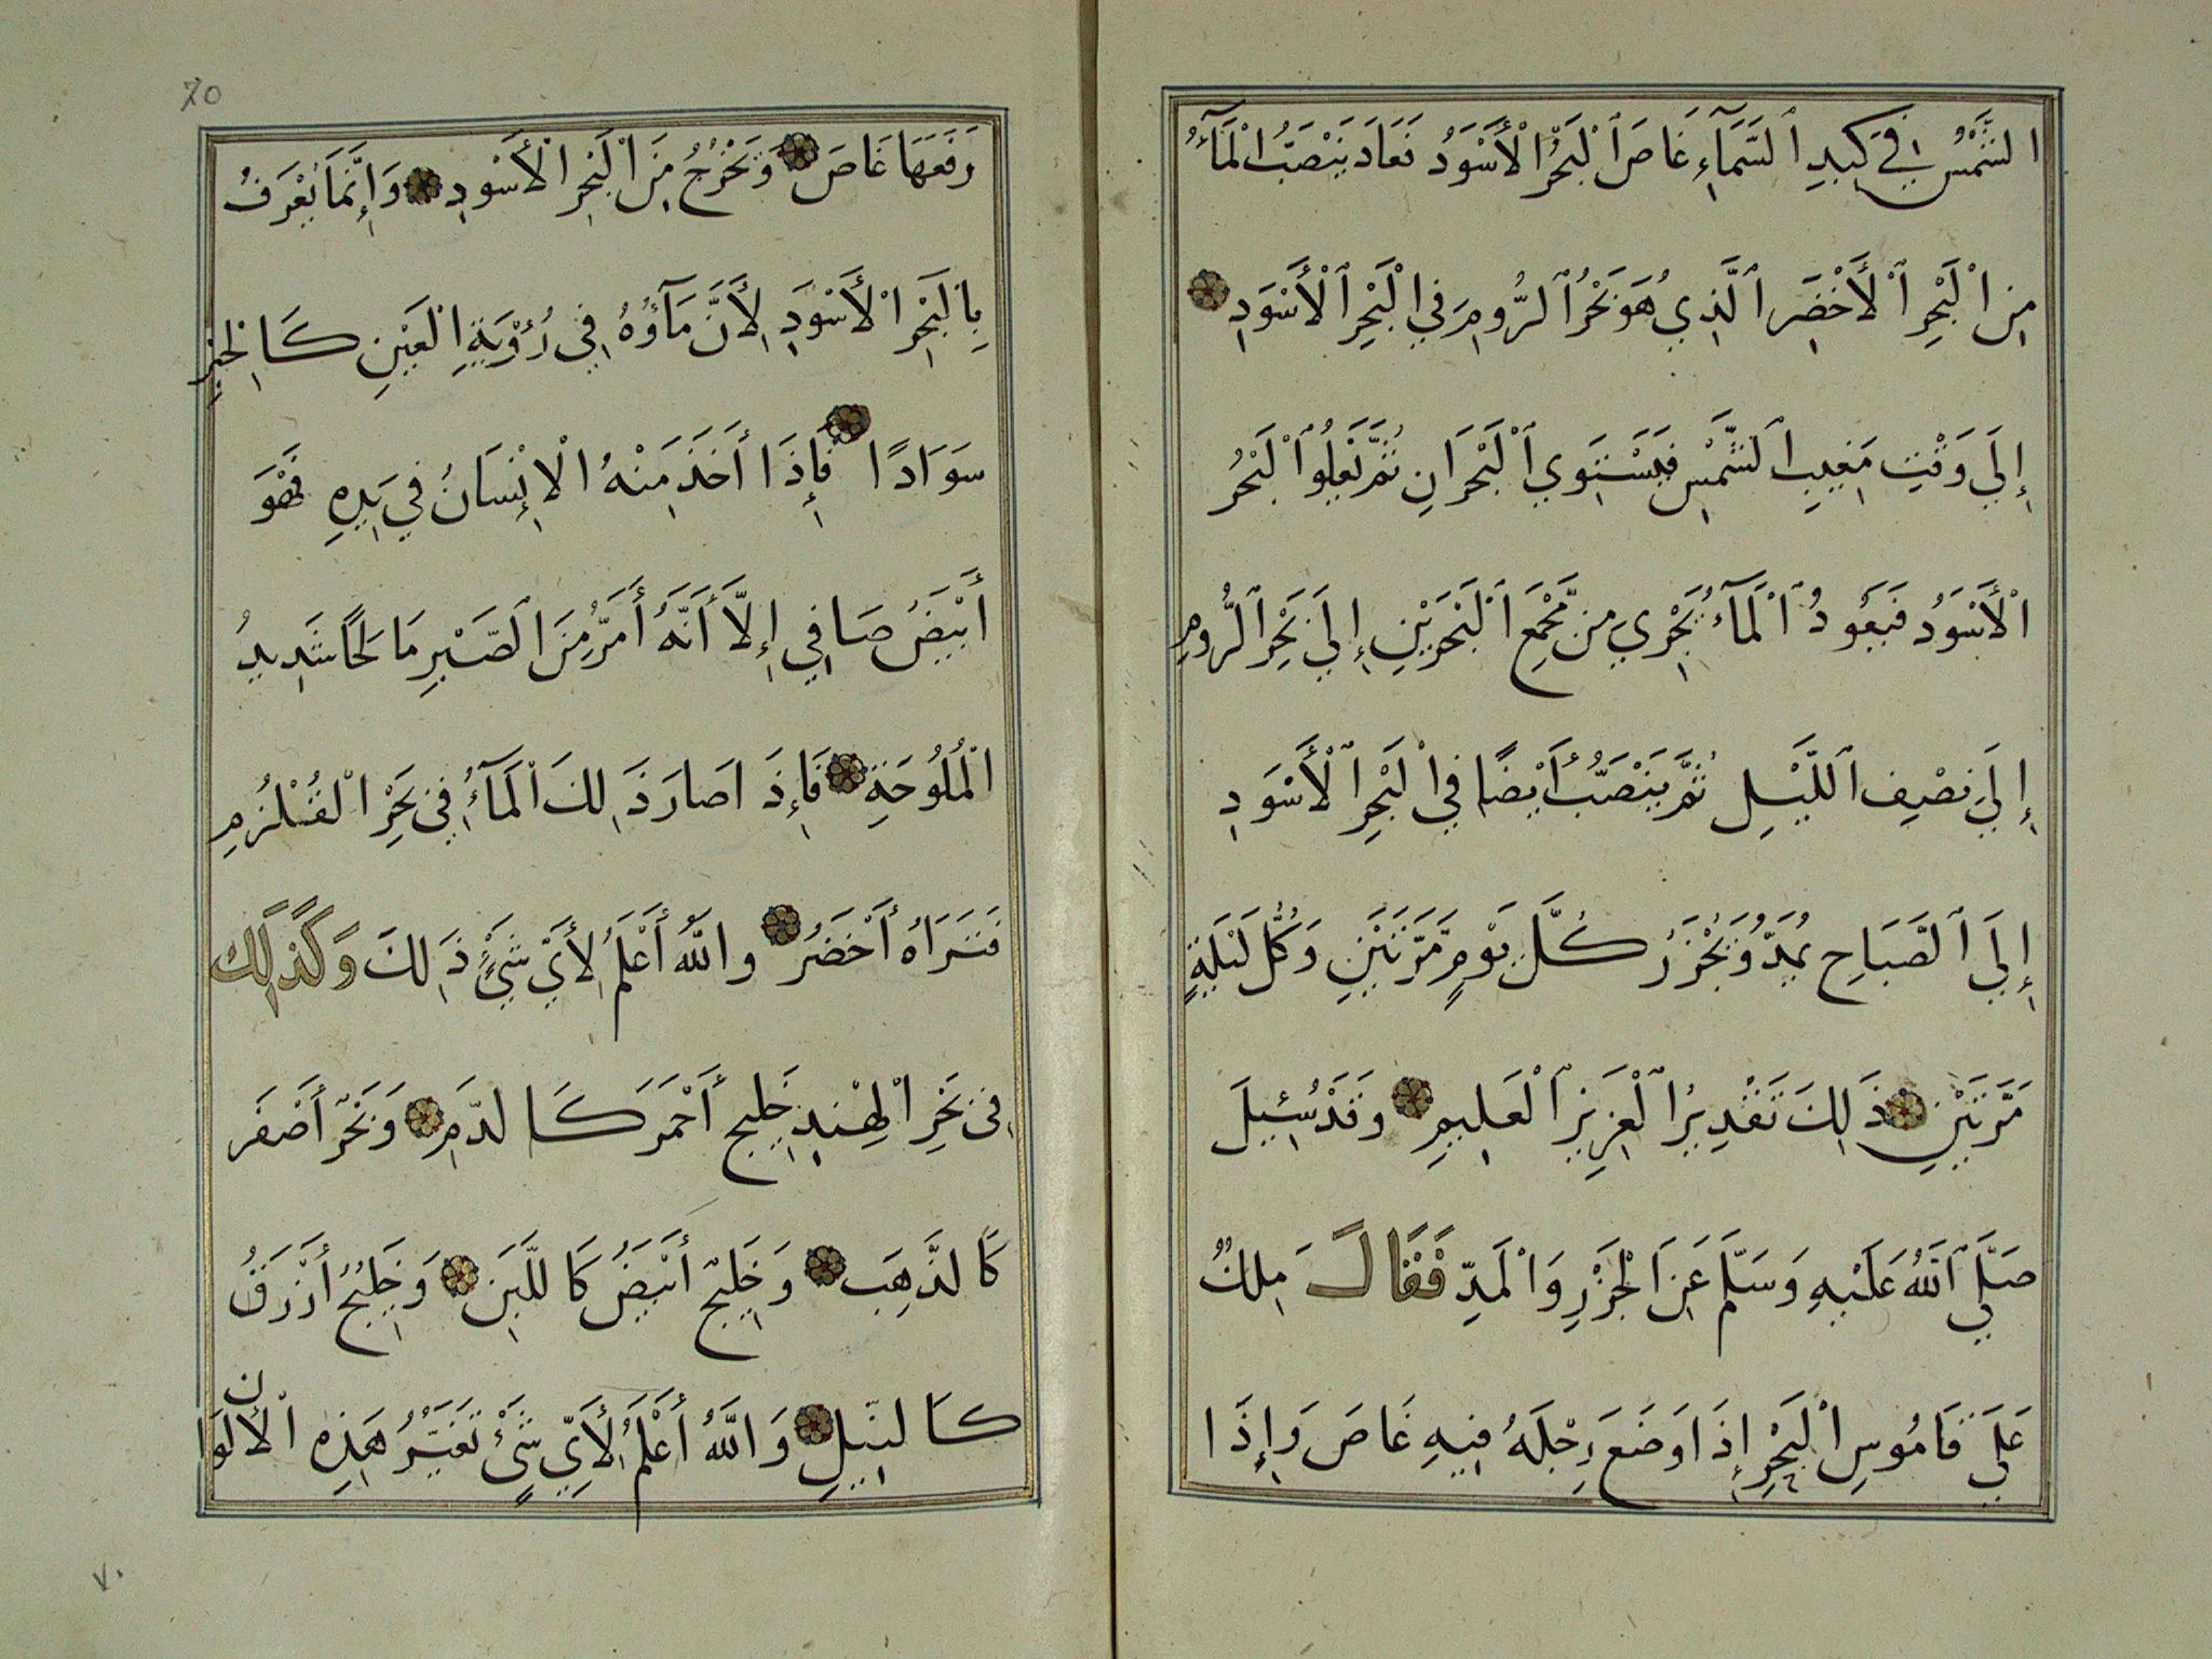 الشَّمْسُ فِي كَبِدِ ٱلسَّمَآءِ غَاصَ ٱلْبَحْرُ الْأَسْوَدُ فَعَادَ يَنْصَبُّ الْمَآءُ
مِنِ الْبَحْرِ ٱلْأَخْضَرِ ٱلَّذِي هُوَ بَحْرُ ٱلرُّومِ فِي الْبَحْرِ ٱلْأَسْوَدِ
إِلَى وَقْتِ مَغِيبِ ٱلشَّمْسِ فَيَسْتَوِي ٱلْبَحْرَانِ ثُمَّ يَعْلُوا ٱلْبَحْرُ
الْأَسْوَدُ فَيَعُودُ ٱلْمَآءُ يَجْرِي مِنْ مَّجْمَعِ ٱلْبَحْرَيْنِ إِلَى بَحْرِ ٱلرُّومِ
إِلَى نِصْفِ ٱللَّيْلِ ثُمَّ يَنْصَبُّ أَيْضًا فِي الْبَحْرِ ٱلْأَسْوَدِ
إِلَى ٱلصَّبَاحِ يُمَدُّ وَيُجْزَرُ كُلَّ يَوْمٍ مَّرَّتَيْنِ وَكُلَّ لَيْلَةٍ
مَرَّتَيْنِ ذَلِكَ تَقْدِيرُ ٱلْعَزِيزِ ٱلْعَلِيمِ وَقَدْ سُئِيلَ
صَلَّى ٱللَّهُ عَلَيْهِ وَسَلَّمَ عَنِ الْجَزْرِ وَالْمَدِّ فَقَالَ مَلِكٌ
عَلَى قَامُوسِ الْبَحْرِ إِذَا وَضَعَ رِجْلَهُ فِيهِ غَاصَ وَإِذَا
70
رَفَعَهَا غَاصَ وَيَخْرُجُ مِنَ الْبَحْرِ الْأَسْوَدِ وَإِنَّمَا يُعْرَفُ
بِالْبَحْرِ الْأَسْوَدِ لِأَنَّ مَآؤُهُ فِي رُؤْيَةِ الْعَيْنِ كَالْحِبْرِ
سَوَادًا فَإِذَا أَخَذَ مِنْهُ الْإِنْسَانُ فِي يَدِهِ فَهُوَ
أَبْيَضُ صَافِي إِلَّا أَنَّهُ أَمَرُّ مِنَ الصَّبْرِ مَالِحًا شَدِيدُ
الْمُلُوحَةِ فَإِذَ اصَارَ ذَلِكَ الْمَآءُ فِي بَحْرِ الْقُلْزُمِ
فَتَرَاهُ أَخْضَرُ وَاللَّهُ أَعْلَمُ لِأَيِّ شَيْءٍ ذَلِكَ وَكَذَلِكَ
فِي بَحْرِ الْهِنْدِ خَلِيج أَحْمَرَ كَالدَّمِ وَبَحْرٌ أَصْفَر
كَالذَّهَبِ وَخَلِيجٌ أَبْيَضُ كَاللَّبَنِ وَخَلِيجٌ أَزْرَقُ
كَالنِّيلِ وَاللَّهُ أَعْلَمُ لِأَيِّ شَيْءٍ تَغَيُّرُ هَذِهِ الْأَلْوَان
٧٠